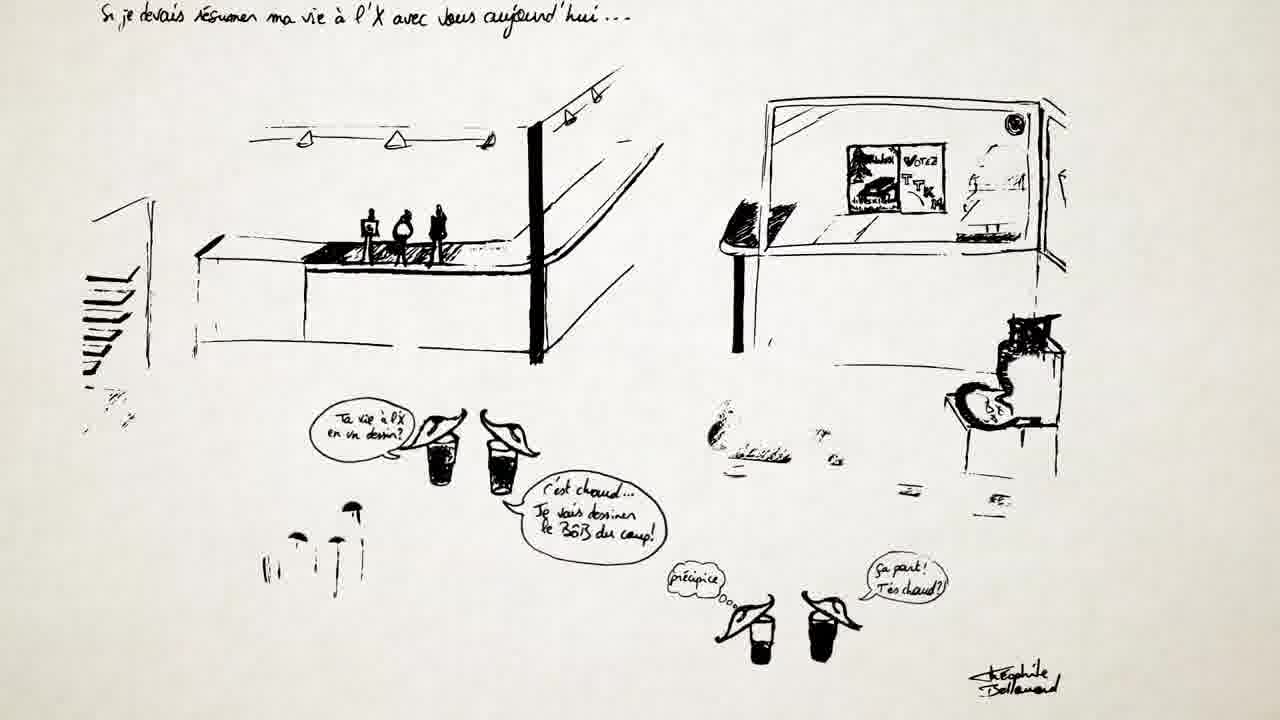 Si je devais résumer ma vie à l'X avec vous aujourd'hui...
VOTEZ
TTK
Ta vie à l'X
en un dessin?
C'est chaud...
Je vais dessiner
le BôB du coup!
précipice
Ça part!
T'es chaud?
Théophile